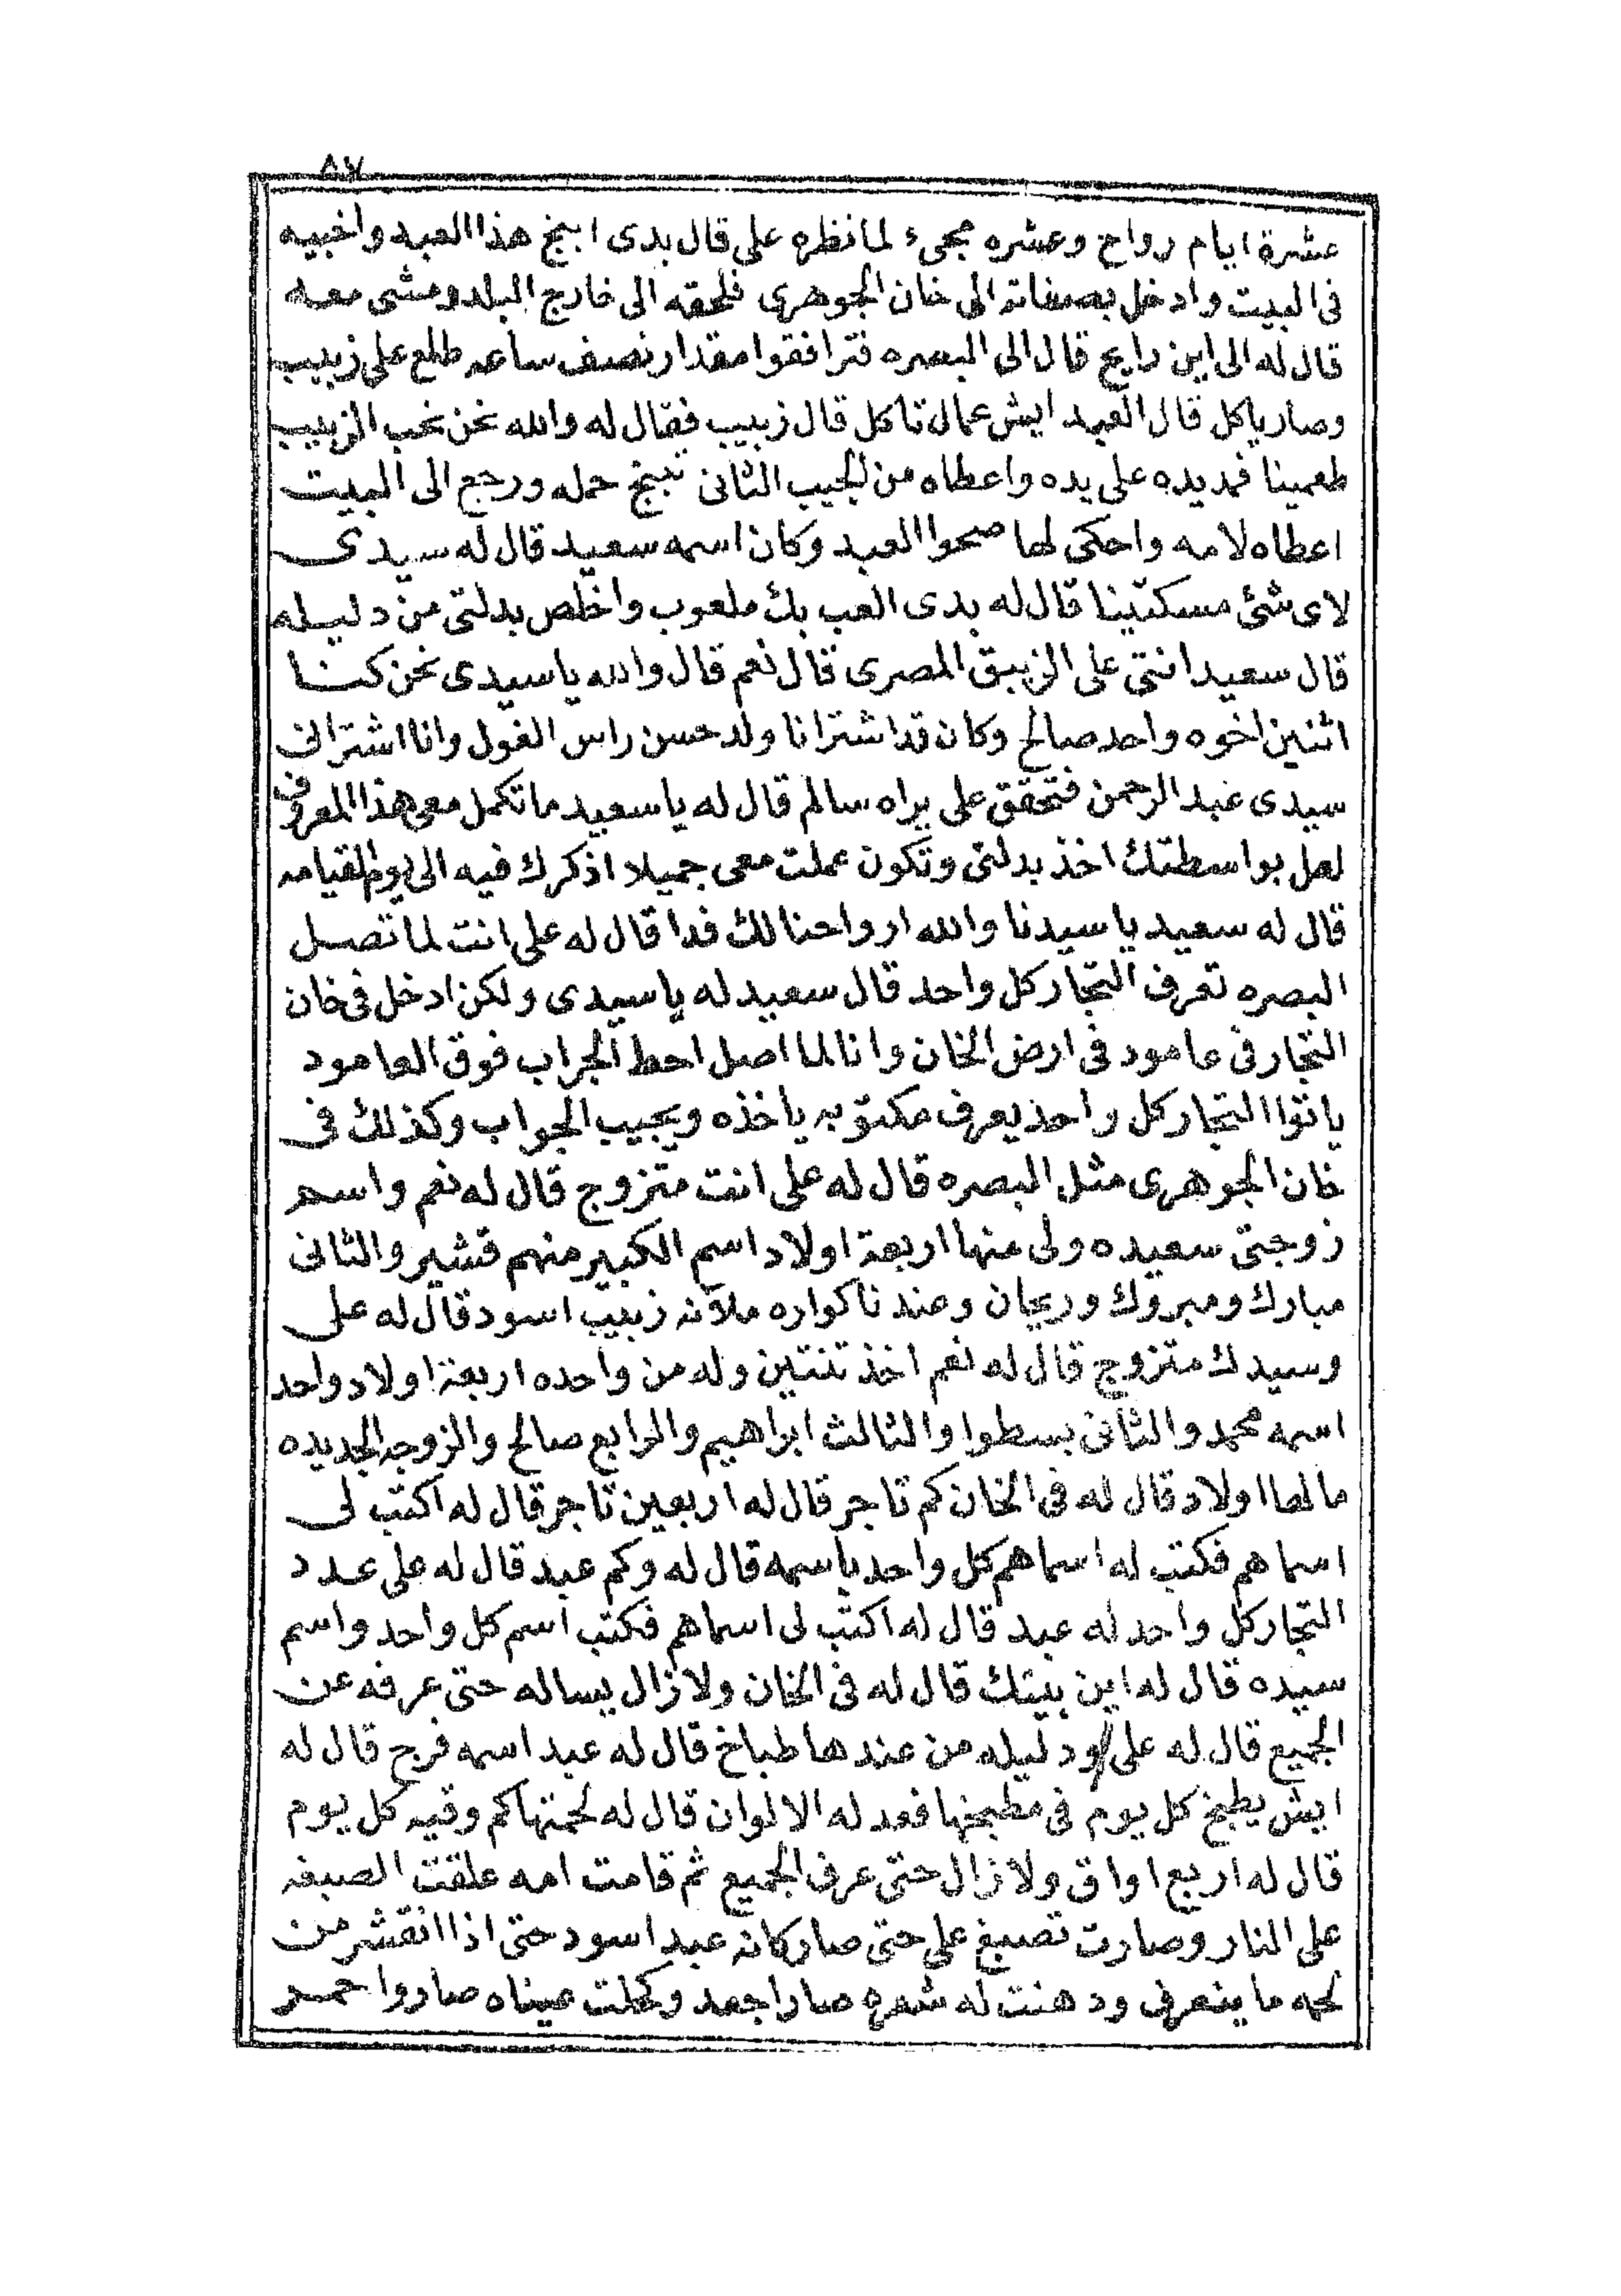 ٨٧
عشرة ايام رواح وعشره مجىء لما نظره على قال بدى ابنج هذا العبد واخبيه
فى البيت وادخل بصفاته الى خان الجوهرى فلحقه الى خارج البلد ومشى معه
قال له الى اين رايح قال الى البصره فترافقوا مقدار نصف ساعه طلع على زبيب
وصار ياكل قال العبد ايش عمال تاكل قال زبيب فقال له والله نحن نحب الزبيب
طعمينا فمد يده على يده واعطاه من الجيب الثانى تبنج حمله ورجع الى البيت
اعطاه لامه واحكى لها صحوا العبد وكان اسمه سعيد قال له سيدى
لاى شئ مسكتينا قال له بدى العب بك ملعوب واخلص بدلتى من دليله
قال سعيد انتى على الزيبق المصرى قال نعم قال والله يا سيدى نحن كنا
اثنين اخوه واحد صالح وكان قد اشترانا ولد حسن راس الغول وانا اشترانى
سيدى عبد الرحمن فتحقق على يراه سالم قال له يا سعيد ما تكمل معى هذا المعروف
لعل بواسطتك اخذ بدلتى وتكون عملت معى جميلا اذكرك فيه الى يوم القيامه
قال له سعيد يا سيدنا والله ارواحنا لك فدا قال له على انت لما تصل
البصره تعرف التجار كل واحد قال سعيد له يا سيدى ولكن ادخل فى خان
التجار فى عامود فى ارض الخان وانا لما اصل احط الجراب فوق العامود
ياتوا التجار كل واحد يعرف مكتوبه ياخذه ويجيب الجواب وكذلك فى
خان الجوهرى مثل البصره قال له على انت متزوج قال له نعم واسم
زوجتى سعيده ولى منها اربعة اولاد اسم الكبير منهم قشير والثانى
مبارك ومبروك وريحان وعندنا كواره ملآنه زبيب اسود قال له على
وسيدك متزوج قال له نعم اخذ تنتين وله من واحده اربعة اولاد واحد
اسمه محمد والثانى بسطوا والثالث ابراهيم والرابع صالح والزوجه الجديده
ما لها اولاد قال له فى الخان كم تاجر قال له اربعين تاجر قال له اكتب لى
اسماهم فكتب له اسماهم كل واحد باسمه قال له وكم عبد قال له على عدد
التجار كل واحد له عبد قال له اكتب لى اسماهم فكتب اسم كل واحد واسم
سيده قال له اين بيتك قال له فى الخان ولازال يساله حتى عرفه عن
الجميع قال له على ودليله من عندها طباخ قال له عبد اسمه فرج قال له
ايش يطبخ كل يوم فى مطبخها فعد له الالوان قال له لحمتها كم وقيه كل يوم
قال له اربع اواق ولازال حتى عرف الجميع ثم قامت امه علقت الصبغه
على النار وصارت تصبغ على حتى صار كانه عبد اسود حتى اذا انقشر من
لحمه ما ينعرف ودهنت له شعره صار اجعد وكحلت عيناه صاروا حمر